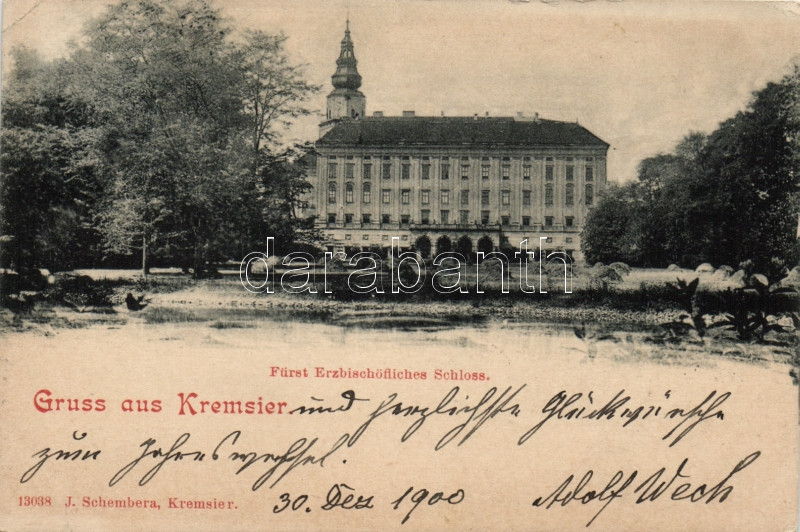 darabanth
Fürst Erzbischöfliches Schloss.
Gruss aus Kremsier und herzlichste Glückwünsche
zum Jahreswechsel.
13038 J. Schembera, Kremsier. 30. Dez 1900 Adolf Wech